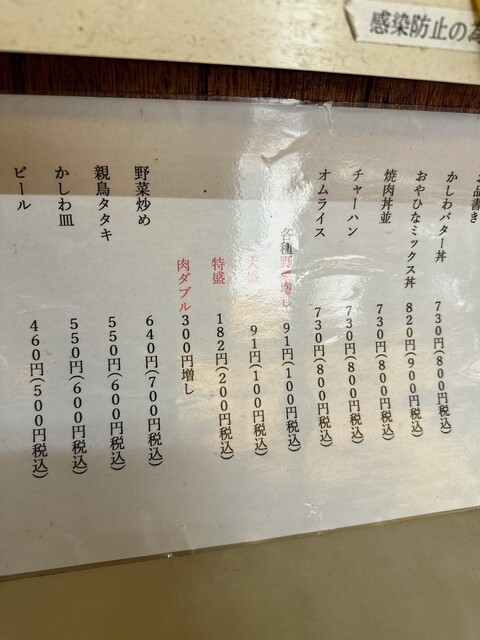 感染防止の為
お品書き
かしわバター丼 730円(800円税込)
おやひなミックス丼 820円(900円税込)
焼肉丼並 730円(800円税込)
チャーハン 730円(800円税込)
オムライス 730円(800円税込)
各種野菜増し 91円(100円税込)
大盛 91円(100円税込)
特盛 182円(200円税込)
肉ダブル 300円増し
野菜炒め 640円(700円税込)
親鳥タタキ 550円(600円税込)
かしわ皿 550円(600円税込)
ビール 460円(500円税込)